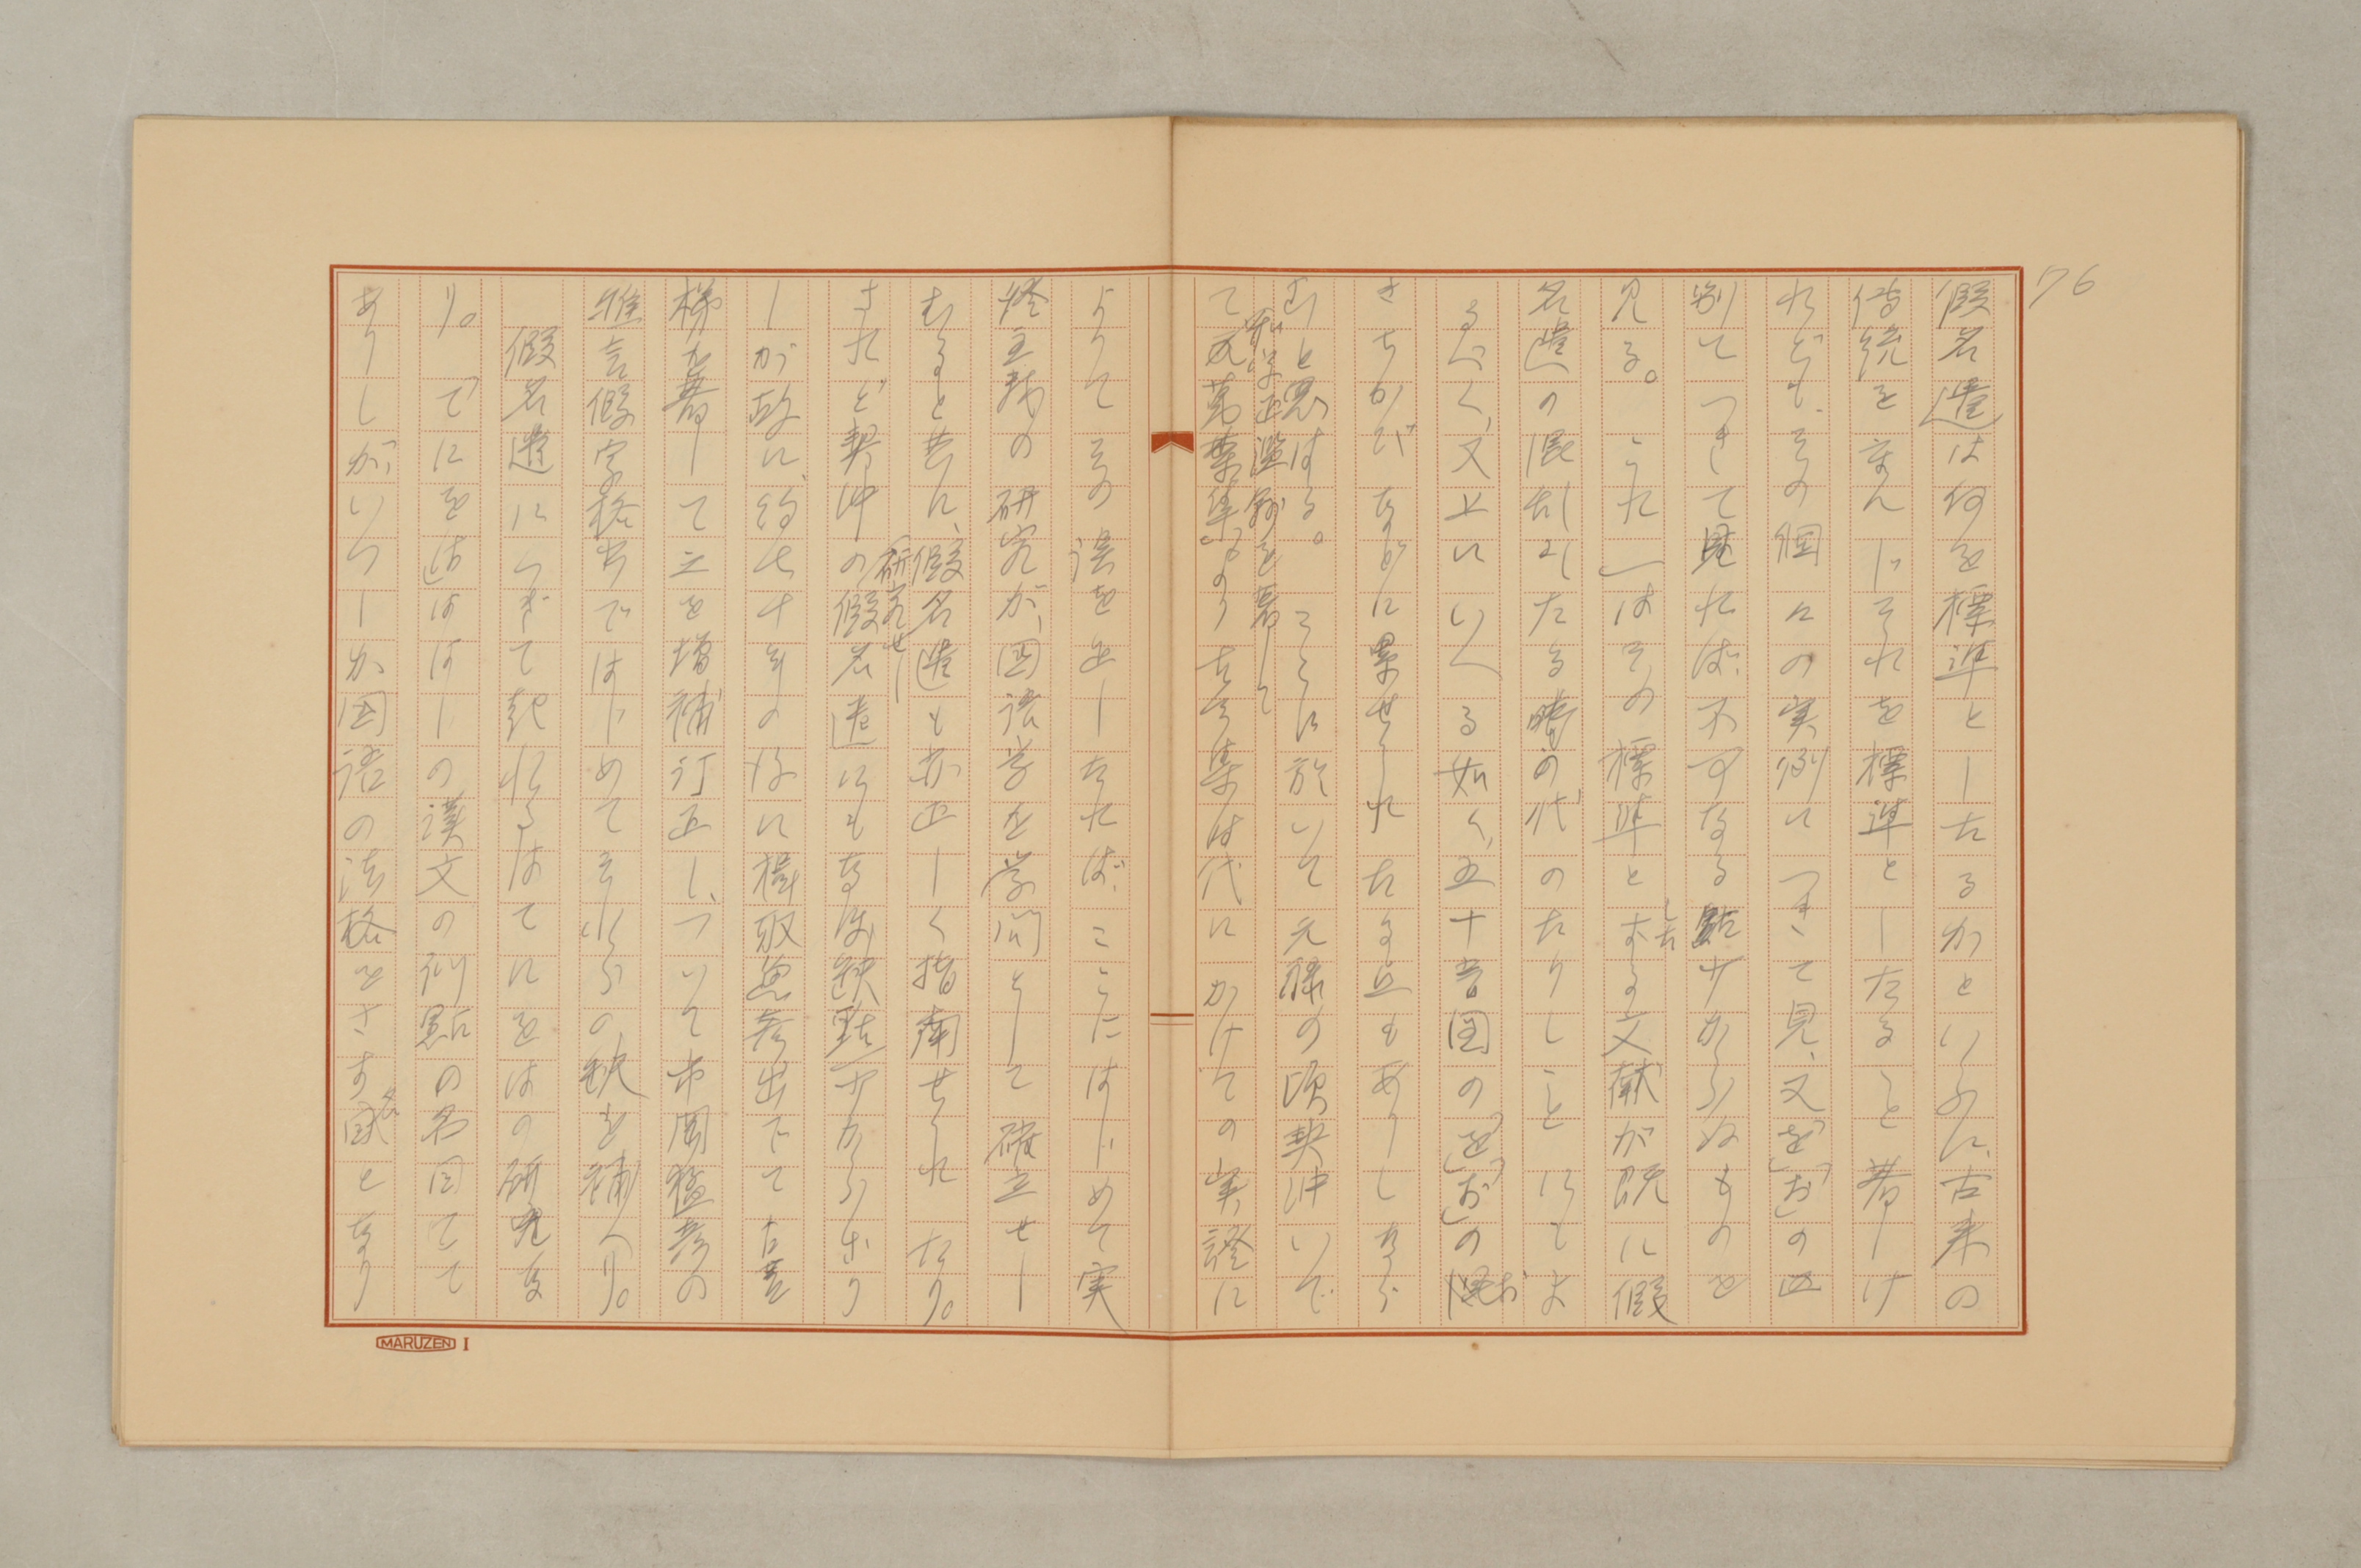 76
假名遣は何を標準としたるかといふに、古来の
傳統を重んじそれを標準としたること著しけ
れども、その個々の実例につきて見、又「を」「お」の區
別につきて見れば、不可なる點少からぬものを
見る。これはその標準としたる文献が既に假
名遣の混乱したる時の代のたりしことにもよ
るべく、又上にいへる如く、五十音図の「を」「お」の
さちがひなどに累せられたる点もありしなら
むと思はる。ここに於いて元禄の頃契沖いで
和字正濫鈔を著して
て萬葉集より古今集時代にかけての実證に
よりてその誤を正したれば、ここにはじめて実
證主義の研究が、国語学を学問として確立せし
むると共に、假名遣も亦正しく指南せられたり。
されど契沖の研究せし假名遣にもなほ缺點少からざり
しが故に、約七十年の後に楫取魚彦出でて古言
梯を著して之を増補訂正し、ついで市岡猛彦の
雅言假字格出ではじめてそれらの缺を補へり。
假名遣につぎて起れるはてにをはの研究な
り。てにをははもと漢文の訓點の名目にて
ありしが、いつしか国語の法格をさす名目となり
MARUZEN I